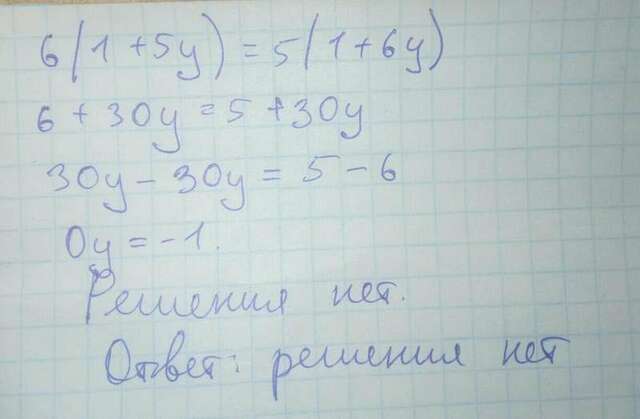 6(1+5y)=5(1+6y)
6+30y=5+30y
30y-30y=5-6
0y=-1.
Решения нет.
Ответ: решения нет